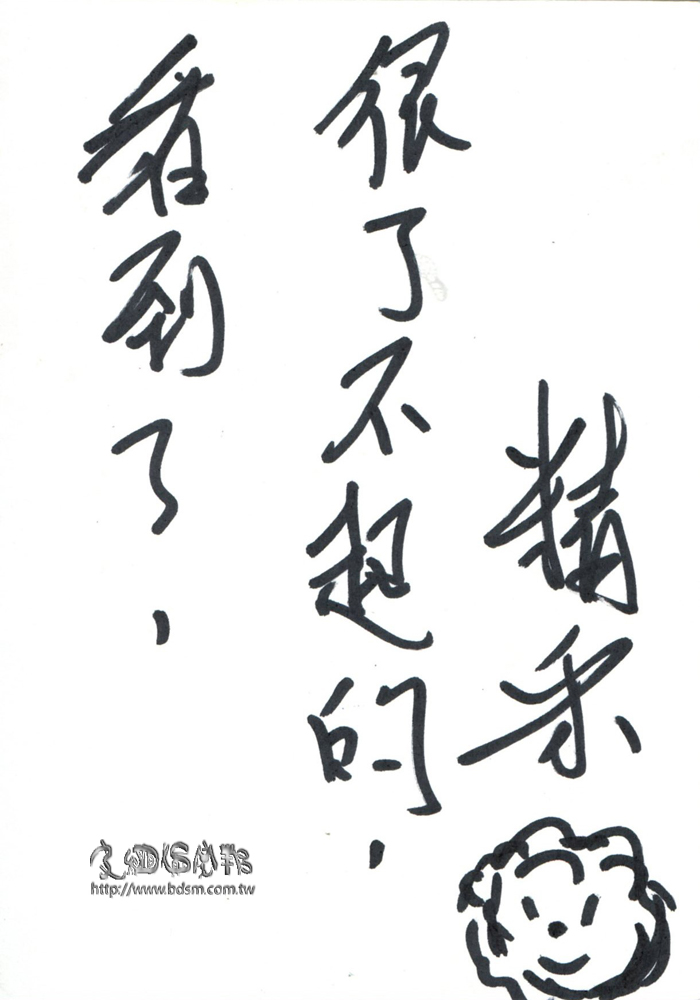 看到了，
很了不起的，
精采
http://www.bdsm.com.tw